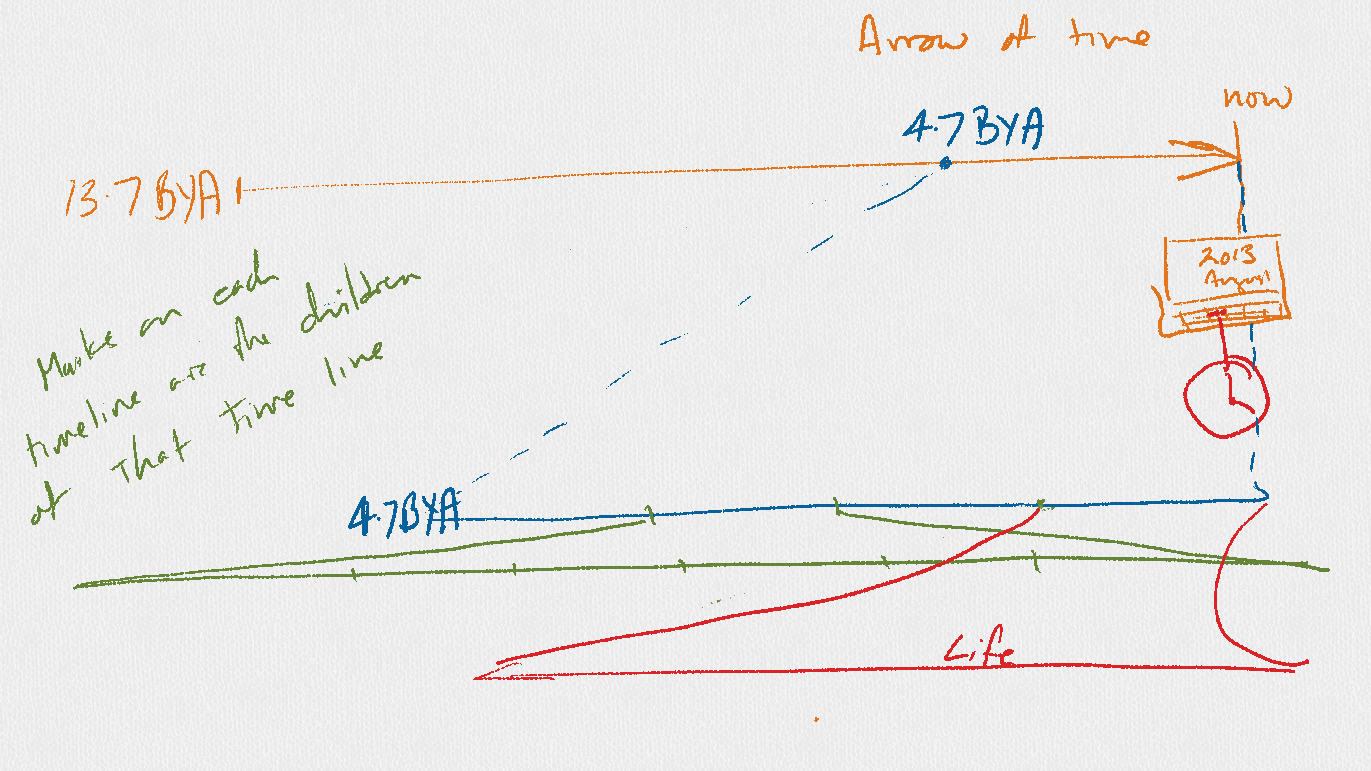 Arrow of time
now
4.7 BYA
13.7 BYA
2013
August
Marks on each
timeline are the children
of That time line
4.7 BYA
Life